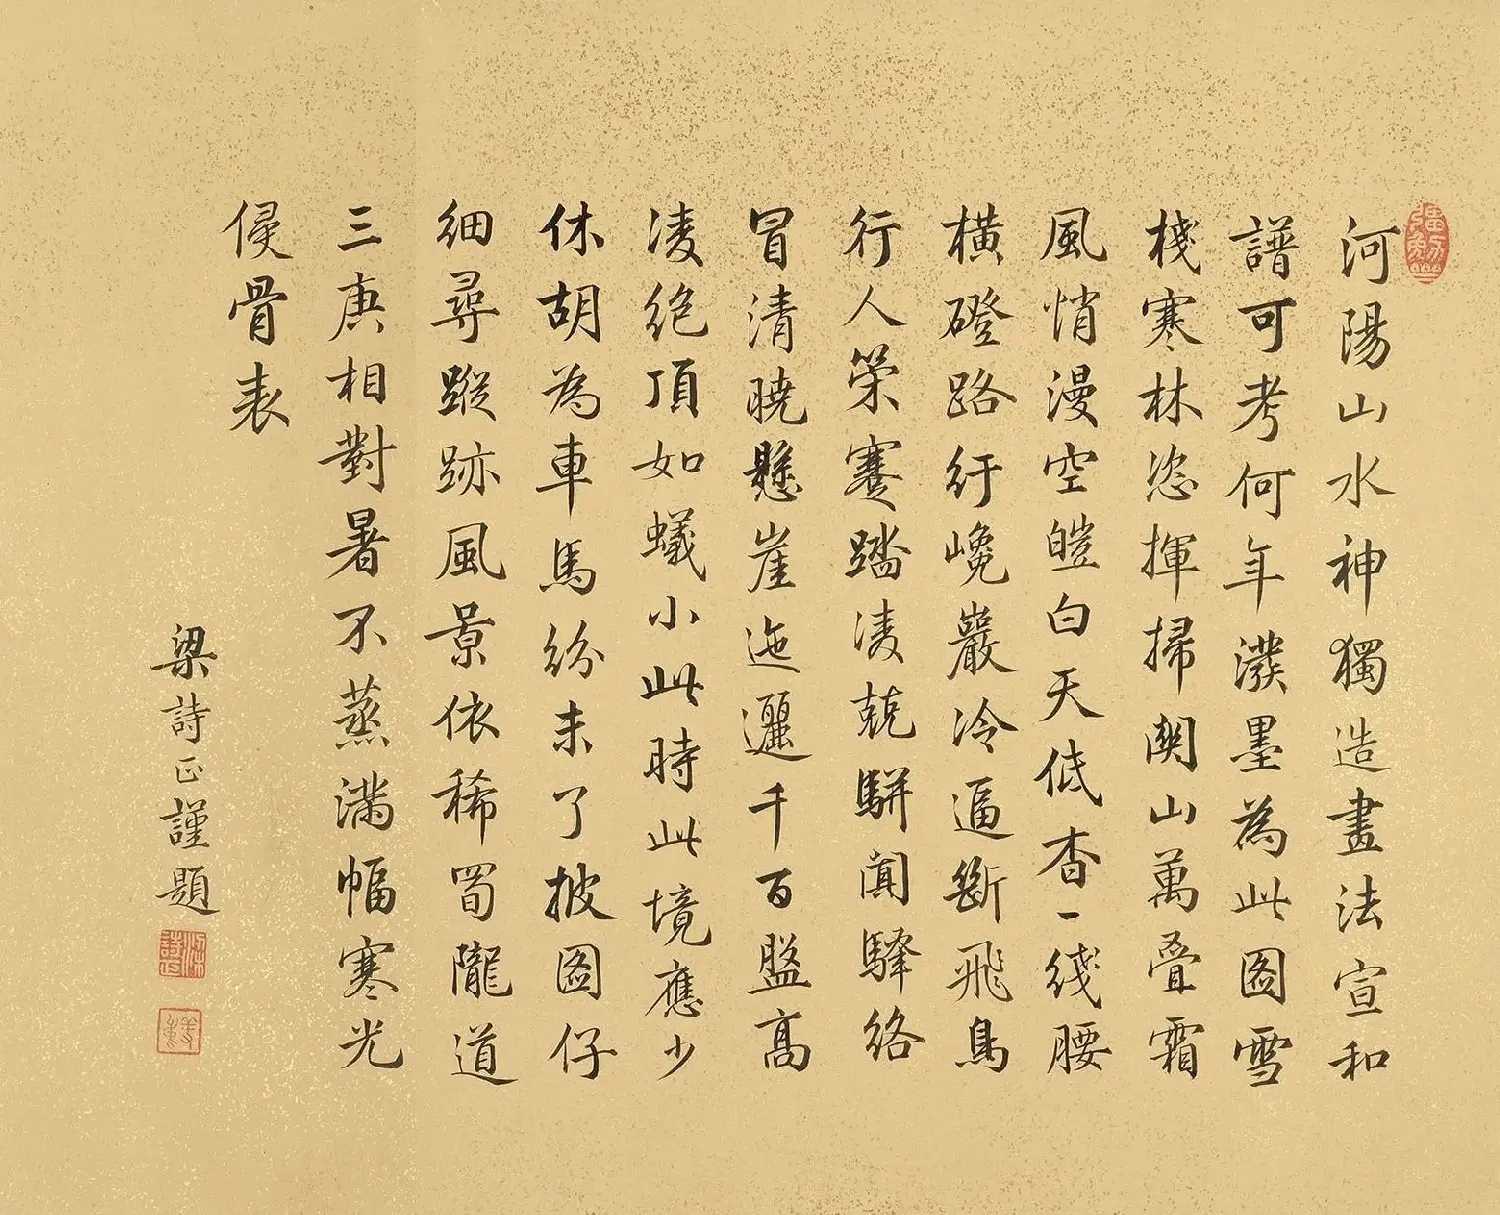 河陽山水神獨造畫法宣和
譜可考何年潑墨為此圖雪
棧寒林恣揮掃關山萬叠霜
風悄漫空皚白天低杳一綫腰
橫磴路紆巉巖冷逼斷飛鳥
行人策蹇踏凌兢駢闐驛絡
冒清曉懸崖迤邐千百盤高
凌绝頂如蟻小此時此境應少
休胡為車馬紛未了披圖仔
細尋蹤跡風景依稀蜀隴道
三庚相對暑不蒸滿幅寒光
侵骨表
梁詩正謹題